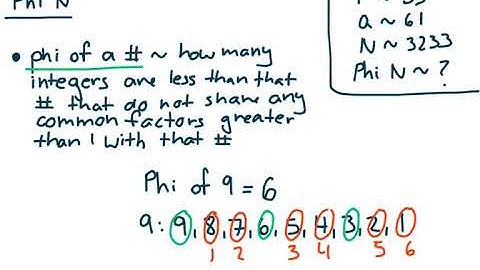 Phi N
• phi of a # ~ how many
integers are less than that
# that do not share any
common factors greater
than 1 with that #
a ~ 61
N ~ 3233
Phi N ~ ?
Phi of 9 = 6
9: 9, 8, 7, 6, 5, 4, 3, 2, 1
1 2 3 4 5 6